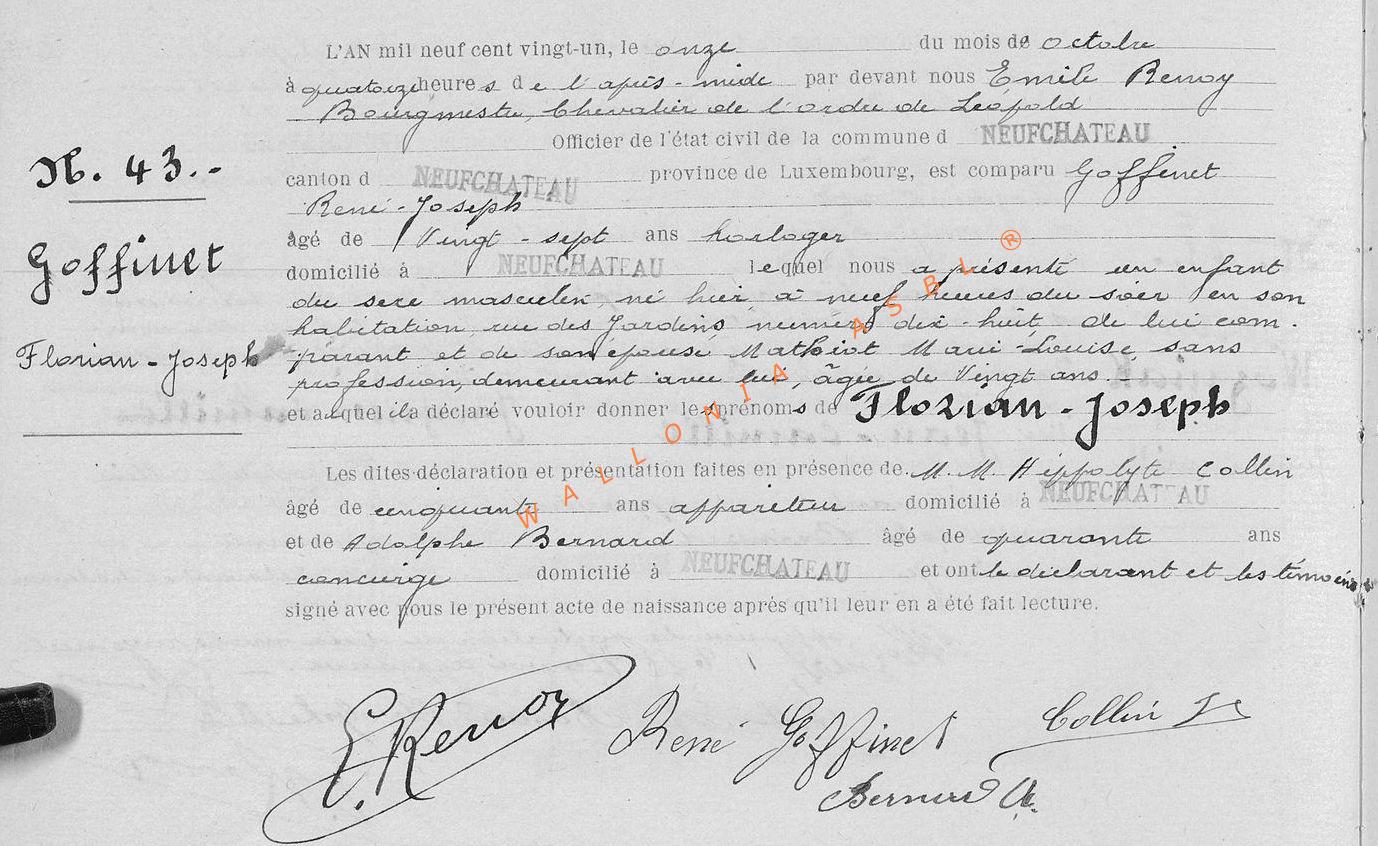 L'AN mil neuf cent vingt-un, le onze du mois de octobre
à quatorze heures de l'après-midi par devant nous Emile Renoy
Bourgmestre, Chevalier de l'ordre de Léopold
Officier de l'état civil de la commune d NEUFCHATEAU
canton d NEUFCHATEAU province de Luxembourg, est comparu Goffinet
René-Joseph
âgé de Vingt-sept ans horloger
domicilié à NEUFCHATEAU lequel nous a présenté un enfant
du sexe masculin, né hier, à neuf heures du soir en son
habitation, rue des Jardins, numéro dix-huit de lui com-
parant et de son épouse Mathiot Marie-Louise, sans
profession, demeurant avec lui, âgée de Vingt ans.
et auquel il a déclaré vouloir donner les prénoms de Florian-Joseph
Les dites déclaration et présentation faites en présence de M.M. Hippolyte Collin
âgé de cinquante ans appariteur domicilié à NEUFCHATEAU
et de Adolphe Bernard âgé de quarante ans
concierge domicilié à NEUFCHATEAU et ont le déclarant et les témoins
signé avec nous le présent acte de naissance après qu'il leur en a été fait lecture.
N. 43.-
Goffinet
Florian-Joseph
E. Renoy
René Goffinet
Collin
Bernard A.
WALLONIA ASBL ®